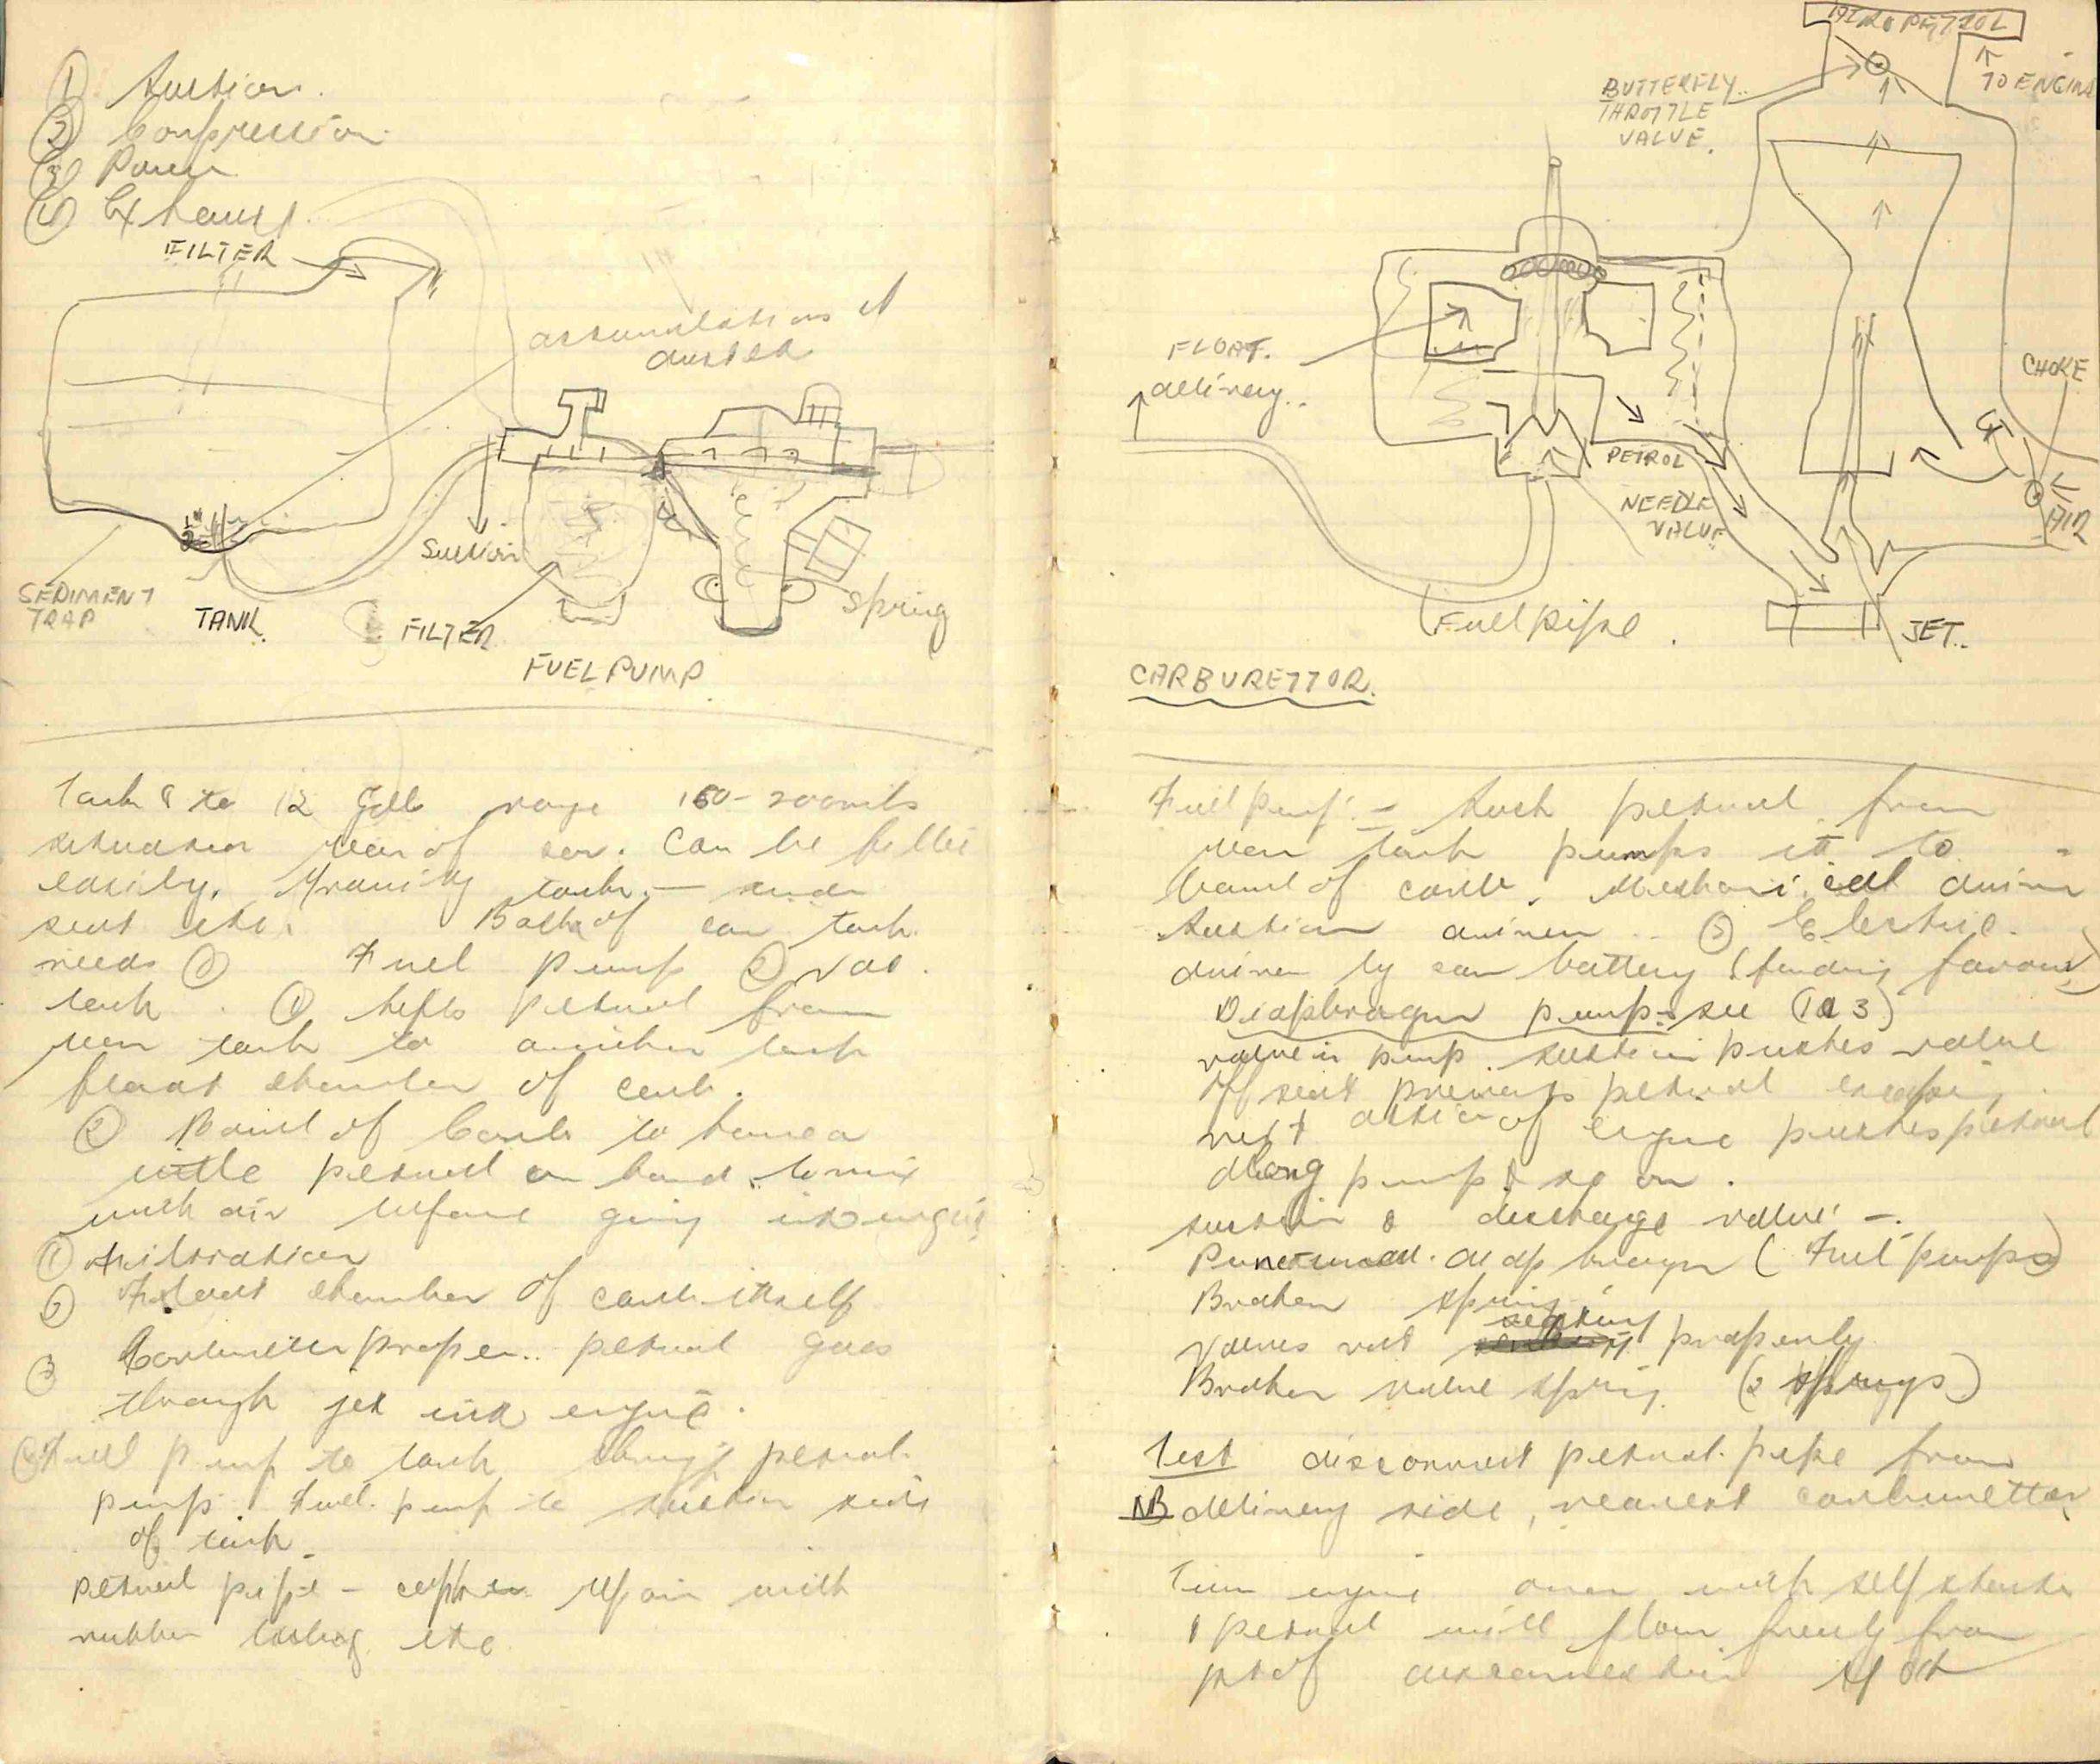 ① Suction.
② Compression.
③ Power
④ Exhaust.
FILTER
accumulation of
SEDIMENT
TRAP
TANK.
Suction
FILTER
Spring
FUEL PUMP
Tank 8 to 12 Galls range 150-200 mls
situation rear of car. Can be filled
easily. Gravity tank. — under
seat etc. Back of car tank
needs ① Fuel Pump ② vac.
tank. ① lifts petrol from
rear tank to another tank
float chamber of carb.
② Point of Carb to have a
little petrol on hand to mix
with air before going into engine
① Filtration
② Float chamber of carb itself
③ Carburetter proper.. petrol goes
through jet into engine.
Fuel Pump to tank petrol
pump. Fuel pump to suction side
of tank.
petrol pipe - repair with
rubber etc
PETROL
TO ENGINE
BUTTERFLY..
THROTTLE
VALVE.
FLOAT.
delivery..
CHOKE
AIR
PETROL
NEEDLE
VALVE
Fuel pipe.
JET..
CARBURETTOR.
Fuel Pump: - Suck petrol from
rear tank pumps it to
of carb. Mechanical driven
Suction driven .. ③ Electric.
driven by car battery (finding favour)
Diaphragm pump:- see (1 3)
valve in pump. suction pushes valve
off seat prevents petrol escaping.
next action of engine pushes petrol
along pump & so on.
suction & discharge valve: -.
Punctured diaphragm (Fuel pumps)
Broken spring
Valves not seating properly
Broken valve spring. (2 springs)
Test disconnect petrol pipe from
NB delivery side, nearest carburettor
Turn engine over with self starter
& petrol will flow freely from
pt of disconnection if OK